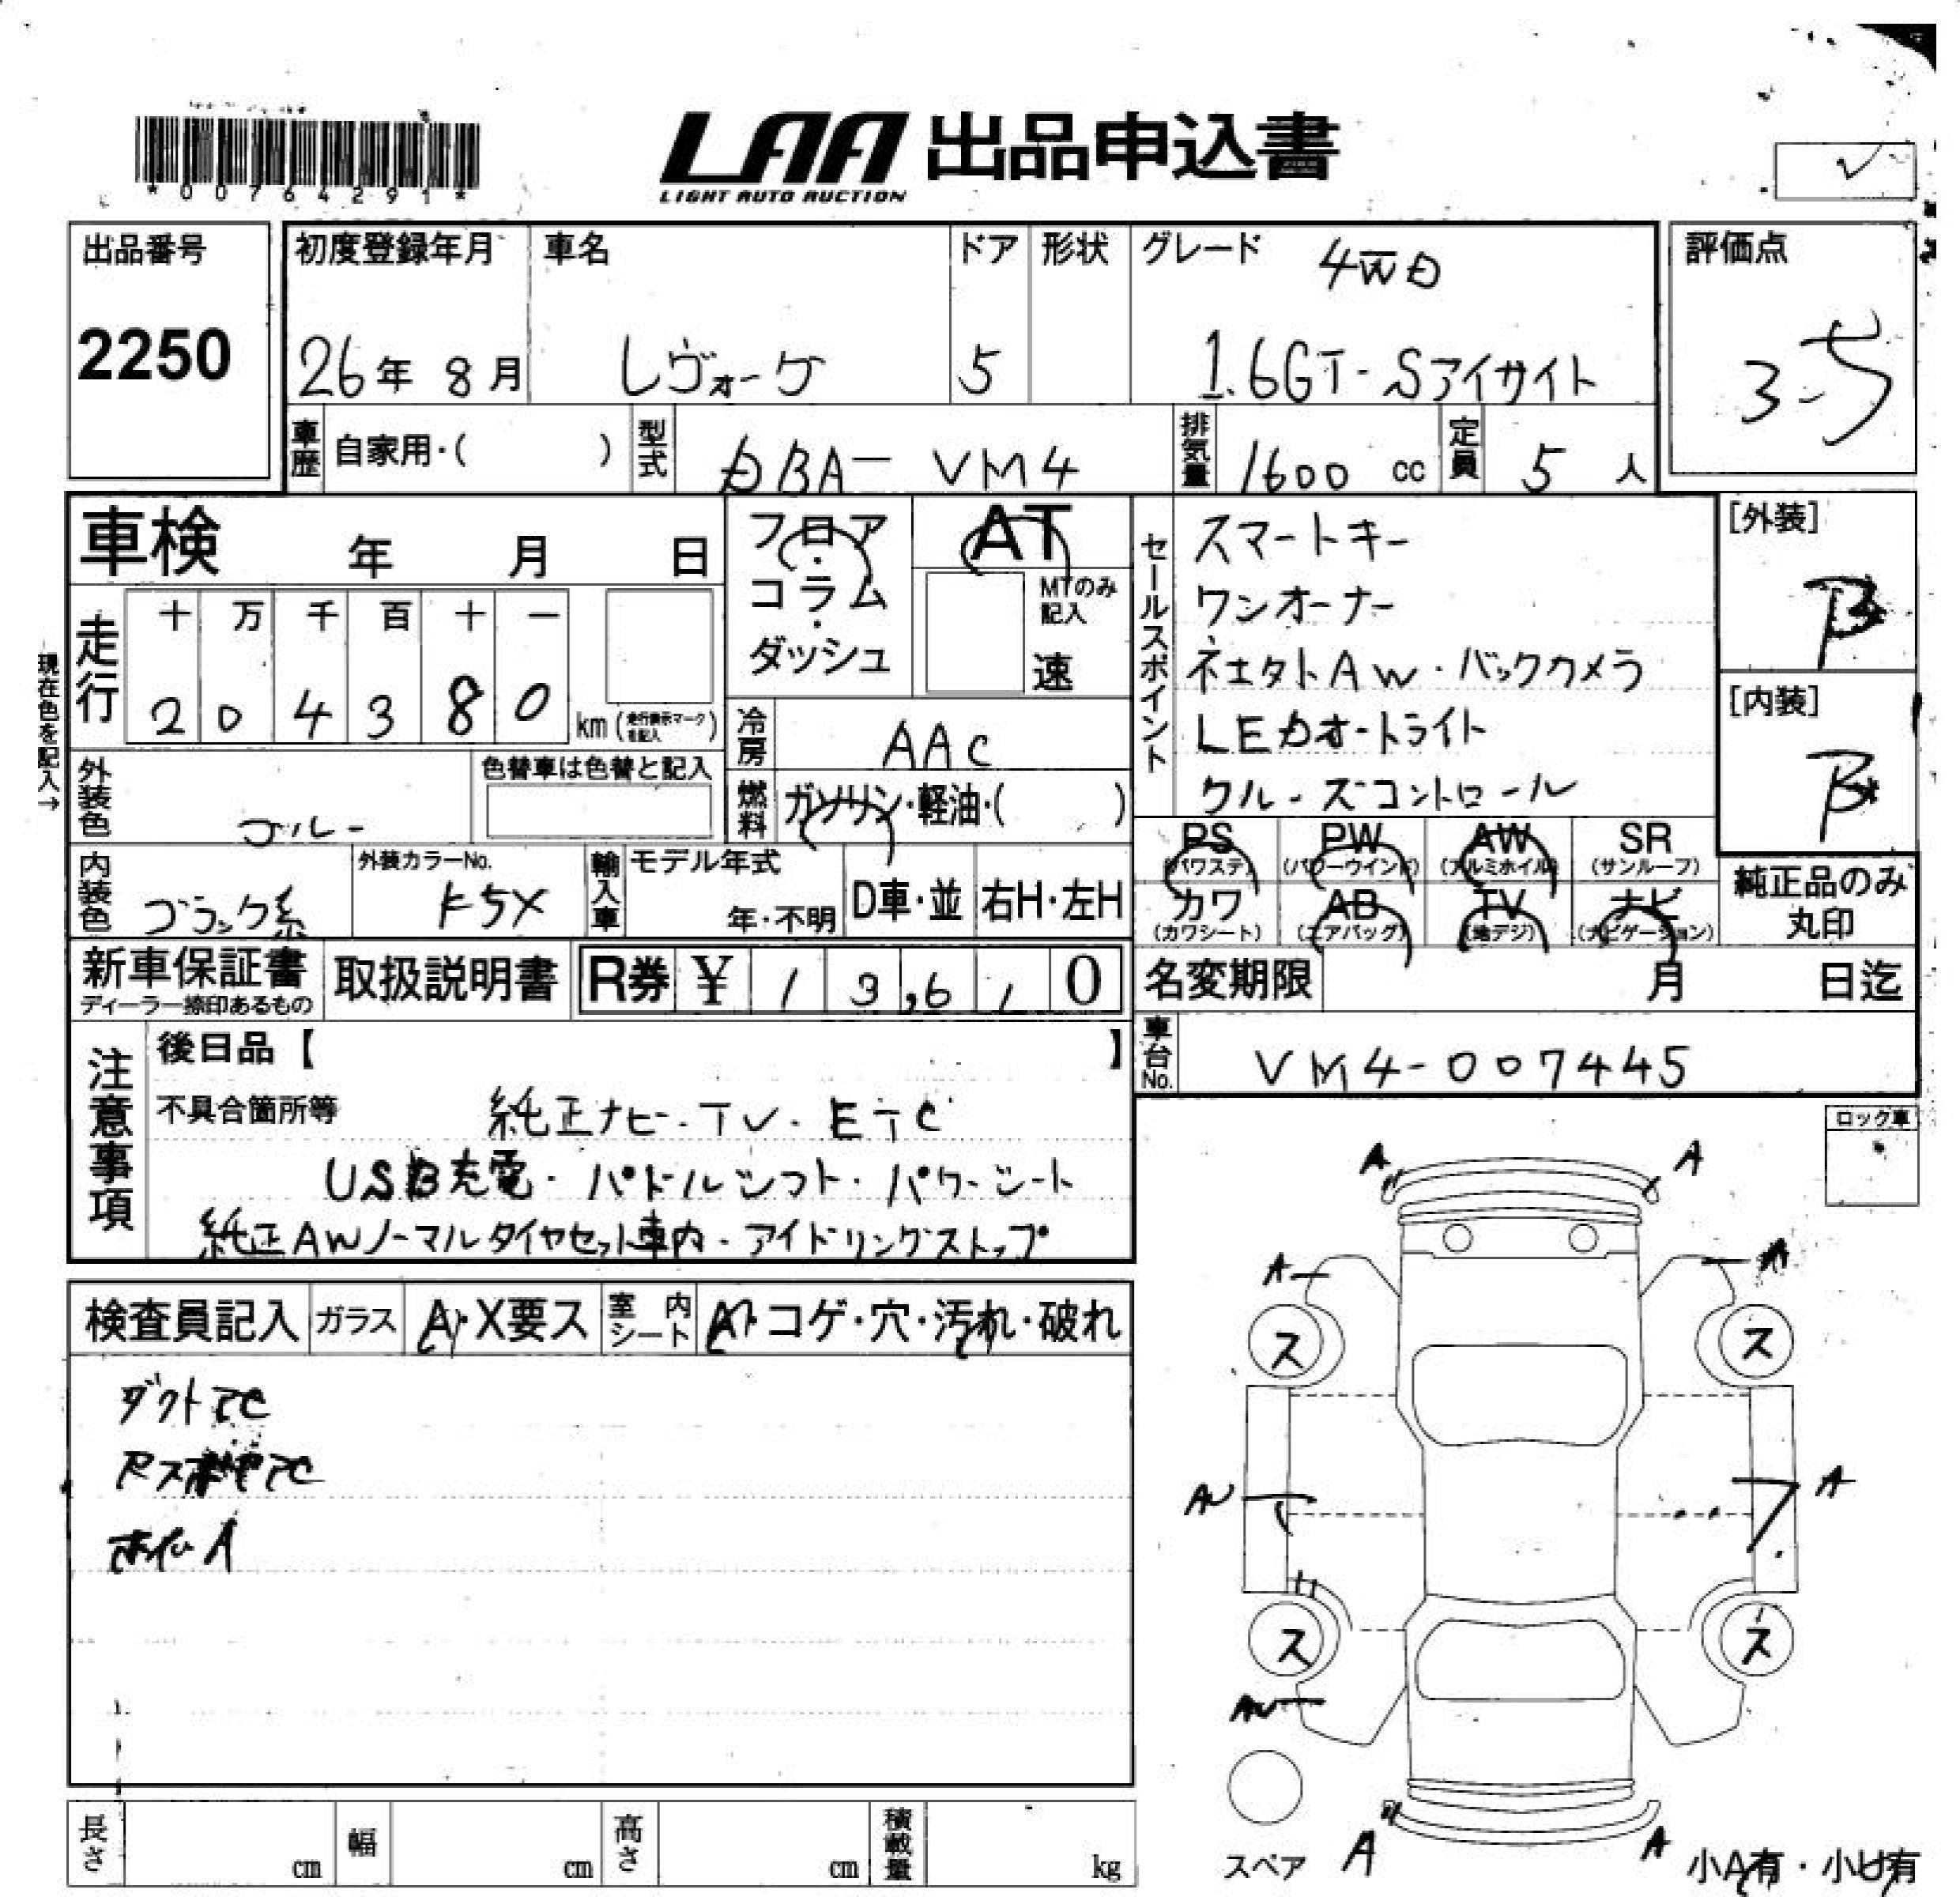 *00764291*
LAA 出品申込書
LIGHT AUTO AUCTION
出品番号
2250
初度登録年月
26年 8月
車名
レヴォーグ
ドア
5
形状
グレード
4WD
1.6GT-Sアイサイト
評価点
3-5
車歴
自家用・( )
型式
DBA- VM4
排気量
1600 cc
定員
5 人
車検 年 月 日
フロア
・
コラム
・
ダッシュ
AT
MTのみ
記入
速
セールスポイント
スマートキー
ワンオーナー
AW・バックカメラ
LEDオートライト
クルーズコントロール
[外装]
B
[内装]
B
現在色を記入→
走行
十 万 千 百 十 一
2 0 4 3 8 0
km (走行表示マークを記入)
冷房
AAC
外装色
ブルー
色替車は色替と記入
燃料
ガソリン・軽油・( )
内装色
ブラック系
外装カラーNo.
K5X
輸入車
モデル年式
年・不明
D車・並
右H・左H
PS PW AW SR
(パワステ) (パワーウインド) (アルミホイル) (サンルーフ)
カワ AB TV ナビ
(カワシート) (エアバッグ) (地デジ) (ナビゲーション)
純正品のみ
丸印
新車保証書
ディーラー捺印あるもの
取扱説明書
R券 ¥ 1 3,6 1 0
名変期限 月 日迄
注意事項
後日品【 】
不具合箇所等
純正ナビ・TV・ETC
USB充電・パドルシフト・パワーシート
純正AWノーマルタイヤセット車内・アイドリングストップ
車台No.
VM4-007445
ロック車
検査員記入
ガラス
A・X要ス
室内シート
A・コゲ・穴・汚れ・破れ
ダクト
ホイルA
A A
A A
ス ス
AU A
ス ス
AU
スペア
A A
小A有・小U有
長さ cm
幅 cm
高さ cm
積載量 kg